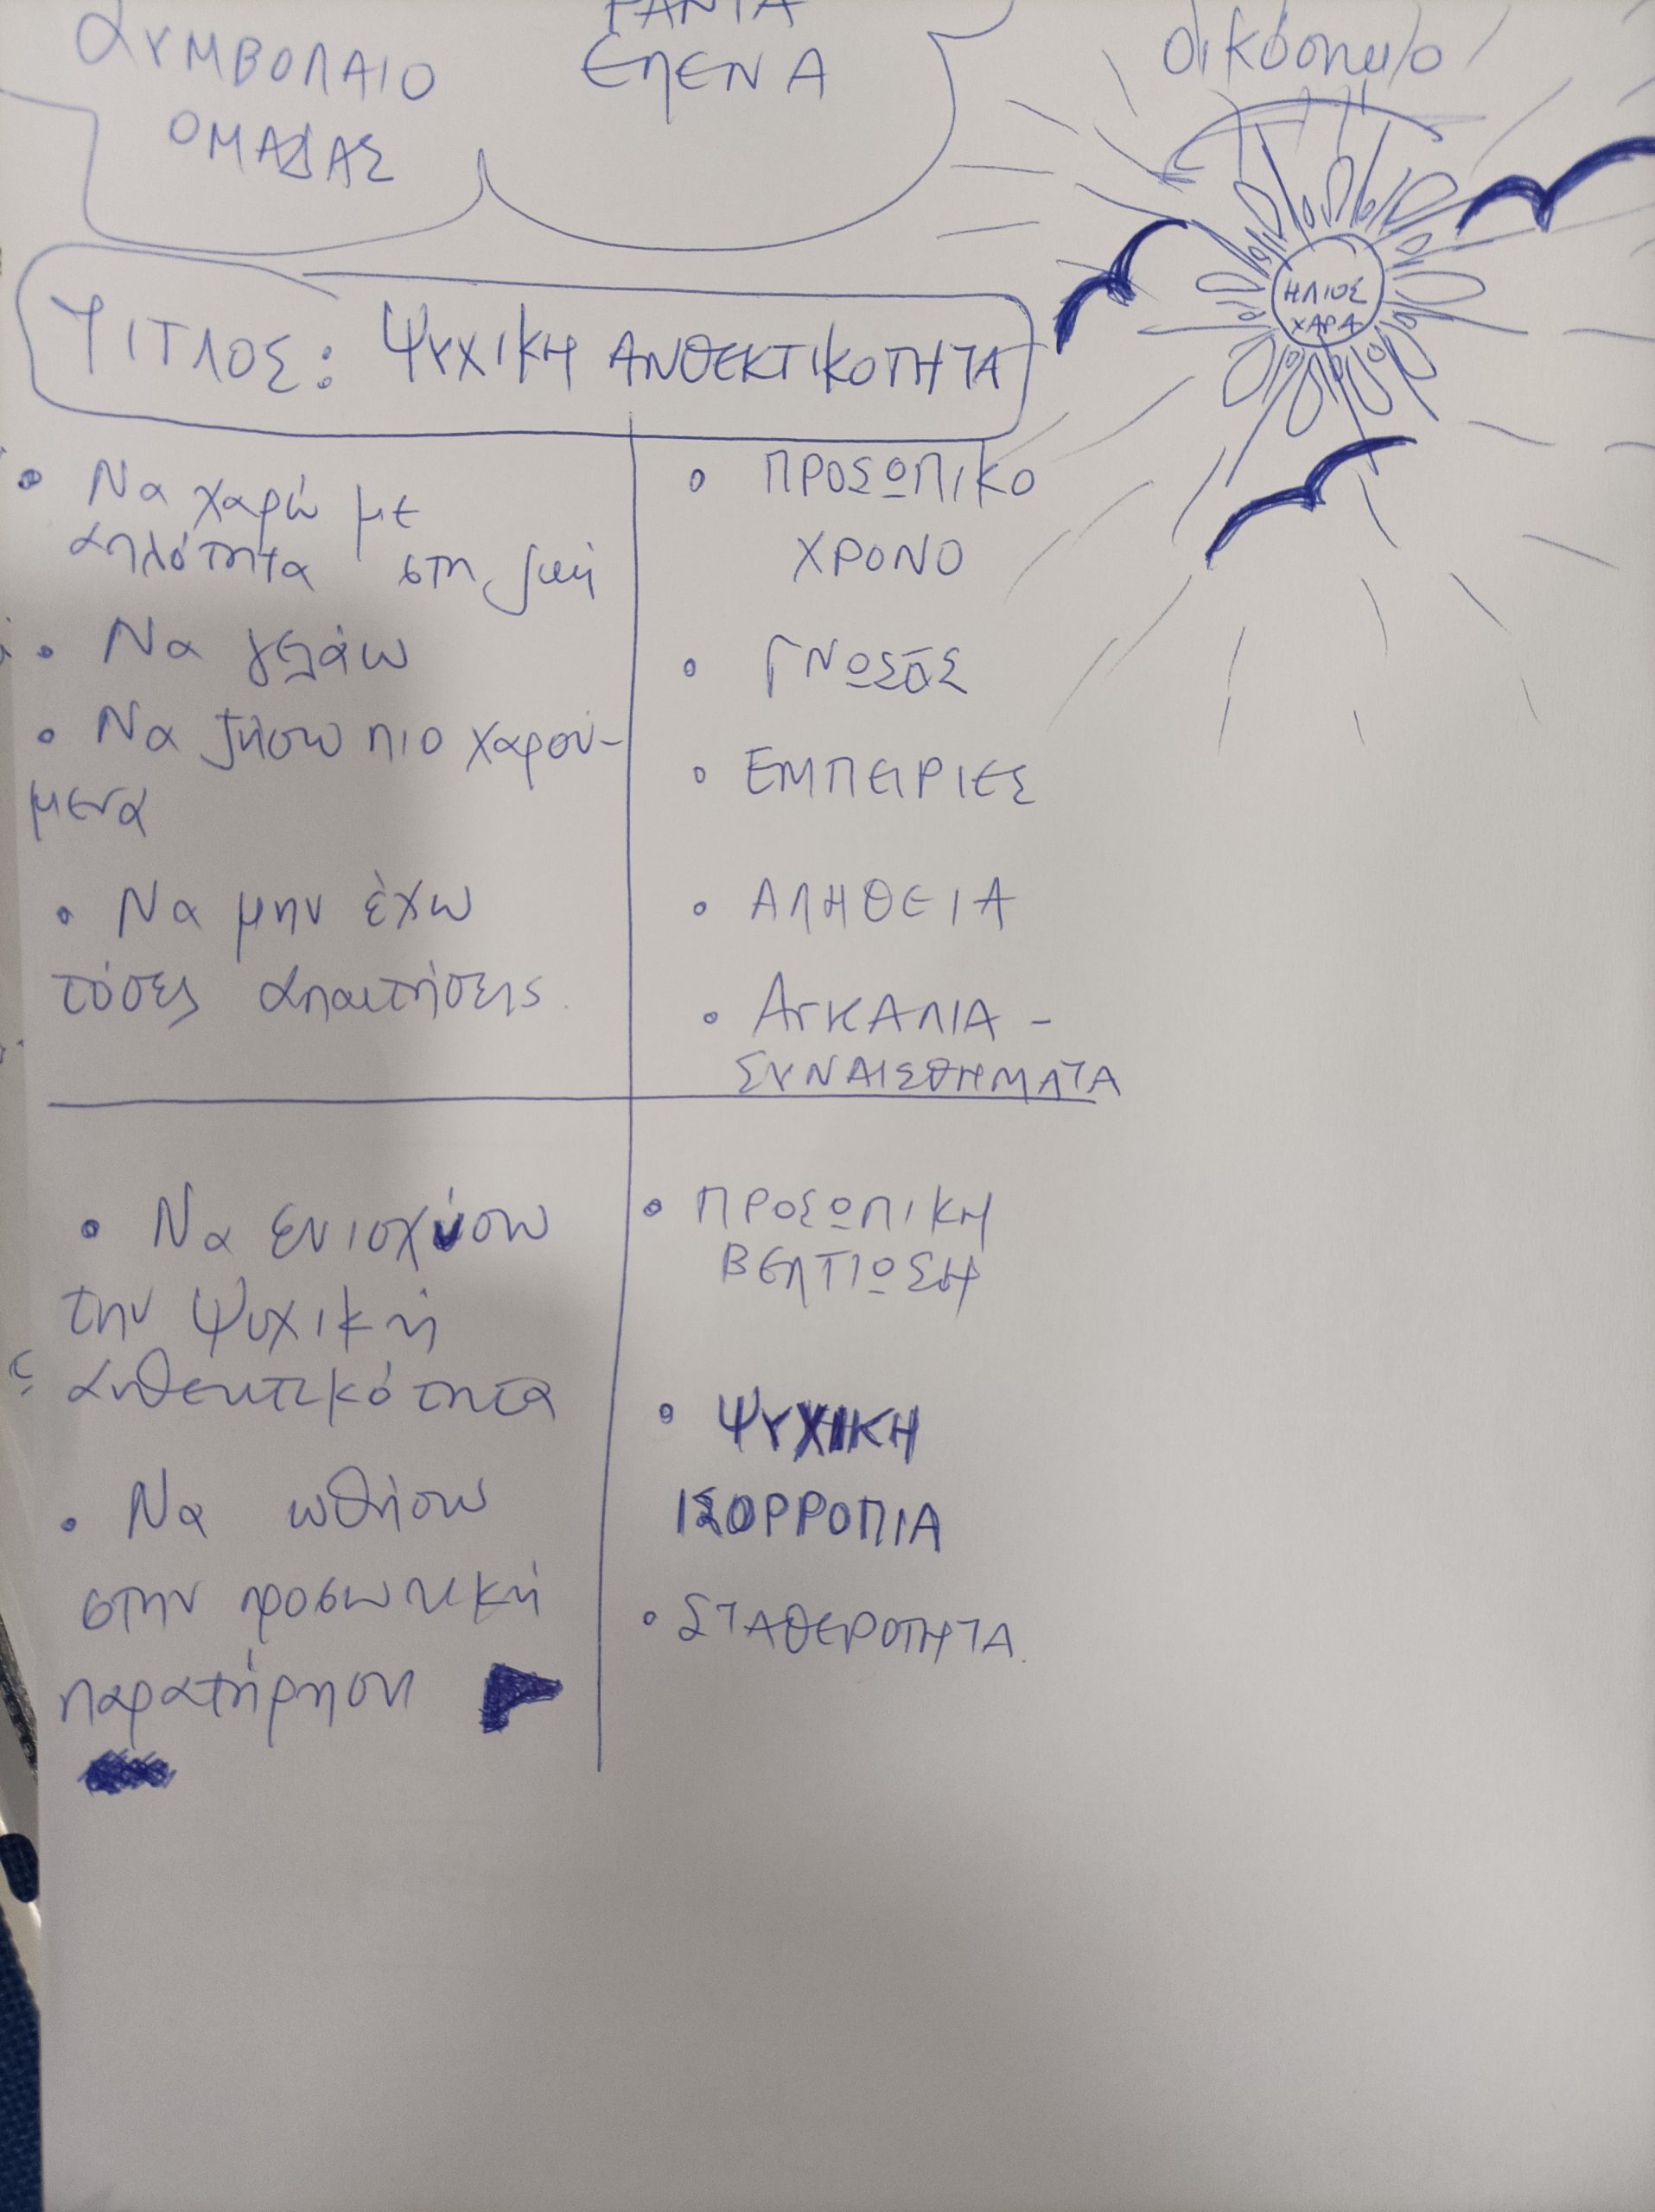 ΣΥΜΒΟΛΑΙΟ
ΟΜΑΔΑΣ
ΡΑΝΙΑ
ΕΛΕΝΑ
οικόσημο
ΗΛΙΟΣ
ΧΑΡΑ
ΤΙΤΛΟΣ: ΨΥΧΙΚΗ ΑΝΘΕΚΤΙΚΟΤΗΤΑ
• Να χαρώ με
απλότητα στη ζωή
• Να γελάω
• Να ζήσω πιο χαρού-
μενα
• Να μην έχω
τόσες απαιτήσεις.
• ΠΡΟΣΩΠΙΚΟ
ΧΡΟΝΟ
• ΓΝΩΣΕΙΣ
• ΕΜΠΕΙΡΙΕΣ
• ΑΛΗΘΕΙΑ
• ΑΓΚΑΛΙΑ -
ΣΥΝΑΙΣΘΗΜΑΤΑ
• Να ενισχύσω
την ψυχική
ανθεκτικότητα
• Να ωθήσω
στην προσωπική
παρατήρηση
• ΠΡΟΣΩΠΙΚΗ
ΒΕΛΤΙΩΣΗ
• ΨΥΧΙΚΗ
ΙΣΟΡΡΟΠΙΑ
• ΣΤΑΘΕΡΟΤΗΤΑ.